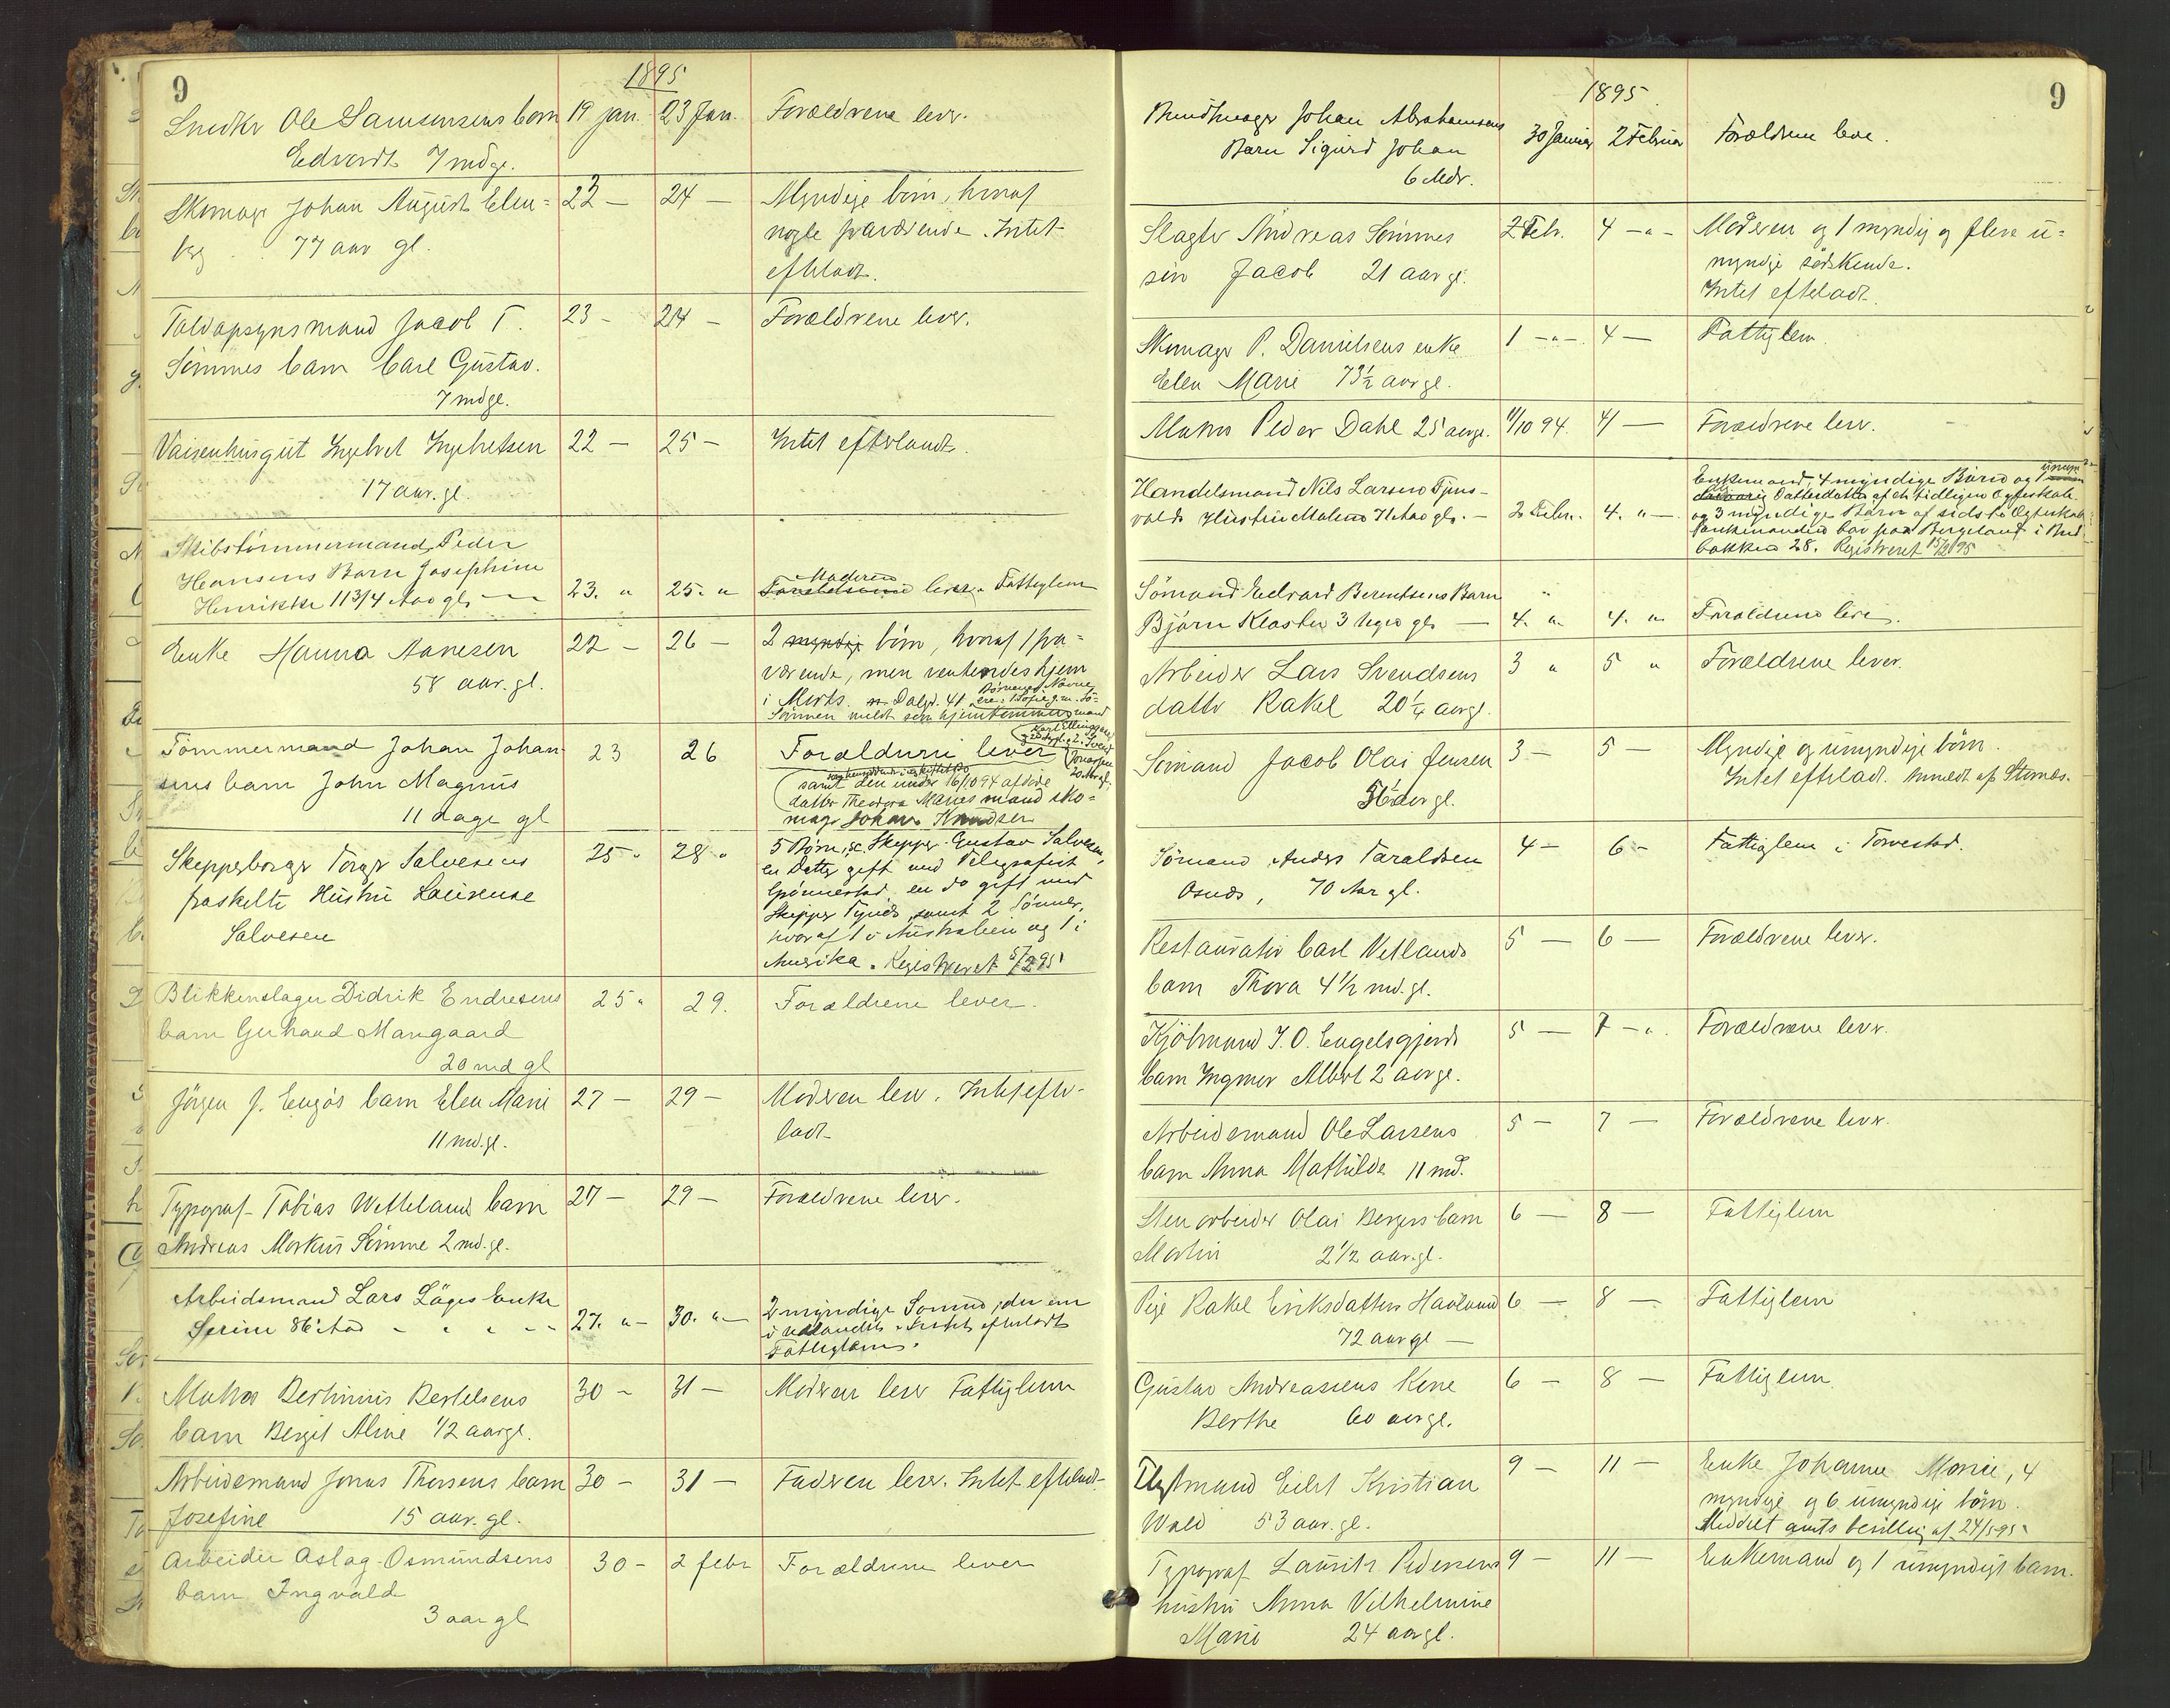 9
1895
Snedkr Ole Samsonsens barn 19 jan. 23 Jan. Forældrene lever.
Edvardt 7 mdgl.
Skomagr Johan August Elen= 22 — 24 — Myndige børn, hvoraf
berg 77 aar gl. nogle fraværende. Intet
efterladt.
Toldopsynsmand Jacob T. 23 - 24 - Forældrene lever.
Sömmes barn Carl Gustav.
7 mdgl.
Vaisenhusgut Ingebret Ingebretsen 22 — 25 — Intet efterladt.
17 aar. gl.
Skibstømmermand Peder
Hansens Barn Josephine Moderen
Henrikke 11 3/4 Aar gl. 23. " 25. " Forældrene lever. Fattiglem
Enke Hanna Aanesen 22 — 26 — 2 myndige børn, hvoraf 1 fra=
58 aar. gl. værende, men ventendes hjem
i Marts. Dalgd. 41
Sønnen meldt som hjemkommen
Tømmermand Johan Johan- 23 26 Forældrene lever
sens barn John Magnus samt den under 16/10 94 afdøde
11 dage gl datter Theodora Maries mand sko=
magr Johan Knudsen
Skipperborger Torger Salvesens 25 " 28 " 5 Børn, sc. Skipper Gustav Salvesen,
fraskilte Hustru Laurense en Datter gift med Telegrafist
Salvesen Grönnestad, en do gift med
Skipper Tjeds, samt 2 Sønner,
hvoraf 1 i Australien og 1 i
Amerika. Registreret 5/2 95
Blikkenslager Didrik Endresens 25 " 29. Forældrene lever.
barn Gerhard Mangaard
20 md gl
Jørgen J. Engøs barn Elen Marie 27 — 29 — Moderen lever. Intet efter-
11 md. gl. ladt
Typograf Tobias Wetteland barn 27 — 29 — Forældrene lever.
Andreas Markus Sømme 2 md. gl.
Arbeidsmand Lars Lages Enke 2 myndige Sønner, den ene
Serine 86 Aar 27. " — 30. " — i Udlandet. Intet efterladt
Fattiglem.
Matros Bertinius Bertelsens 30 — 31 — Moderen lever Fattiglem
barn Bergit Aline 1/2 aar gl.
Arbeidsmand Jonas Thorsens barn 30 — 31 — Faderen lever. Intet efterladt
Josefine 15 aar. gl.
Arbeider Aslag Osmundsens 30 - 2 febr Forældrene lever
barn Ingvald
3 aar gl
1895
9
Buntmager Johan Abrahamsens
Barn Sigurd Johan 30 Januar 2 Februar Forældrene leve.
6 Mdr.
Slagter Andreas Sömmes 2 Febr. 4 — " — Moderen og 1 myndig og flere u=
sön Jacob 21 aar gl. myndige södskende.
Intet efterladt.
Skomagr P. Danielsens enke 1 — " — 4 — Fattiglem.
Elen Marie 73 1/2 aar gl.
Matros Peder Dahl 25 aar gl. 11/10 94. 4 — Forældrene lever.
Handelsmand Nils Larsen Tjens- Enkemand, 4 myndige Børn og 1 umyn
volds Hustru Malene 71 Aar gl. — 2 Febr. 4. " — dig Datterdatter af et tidligere Ægteskab
og 3 myndige Børn af sidste Ægteskab
Enkemanden bor paa Bergeland i Bred
bakken 28. Registreret 15/2 95
Sömand Edvard Berentsens Barn
Björn Kloster 3 Uger gl. — 4. " 4. " Forældrene leve.
Arbeider Lars Svendsens 3 " 5 " Forældrene lever.
datter Rakel 20 1/4 aar gl.
Sømand Jacob Olai Jensen 3 — 5 — Myndige og umyndige børn.
aar gl. Intet efterladt. Anmeldt af Stamnes.
Sömand Anders Taraldsen 4 — 6 — Fattiglem i Torvestad.
Osnes, 70 Aar gl.
Restauratør Carl Vetlands 5 — 6 — Forældrene lever.
barn Thora 4 1/2 md. gl.
Kjöbmand J. O. Engelsgjerds 5 — 7 — ". Forældrene lever.
barn Ingmer Albert 2 aar gl.
Arbeidsmand Ole Larsens 5 — 7 — Forældrene lever.
barn Anna Mathilde 11 md.
Stenarbeider Olai Bergers barn 6 — 8 — Fattiglem
Martin 2 1/2 aar. gl.
Pige Rakel Eriksdatter Havland 6 — 8 — Fattiglem
72 aar gl —
Gustav Andreassens Kone 6 — 8 — Fattiglem.
Berthe 60 aar gl.
Flytmand Eilert Kristian 9 — 11 — Enke Johanne Marie, 4
Wold 53 aar. gl. myndige og 6 umyndige børn.
Meddelt amts bevilling af 24/5 95
Typograf Lauritz Pedersens 9 — 11 — Enkemand og 1 umyndigt barn.
hustru Anna Vilhelmine
Marie 24 aar gl.